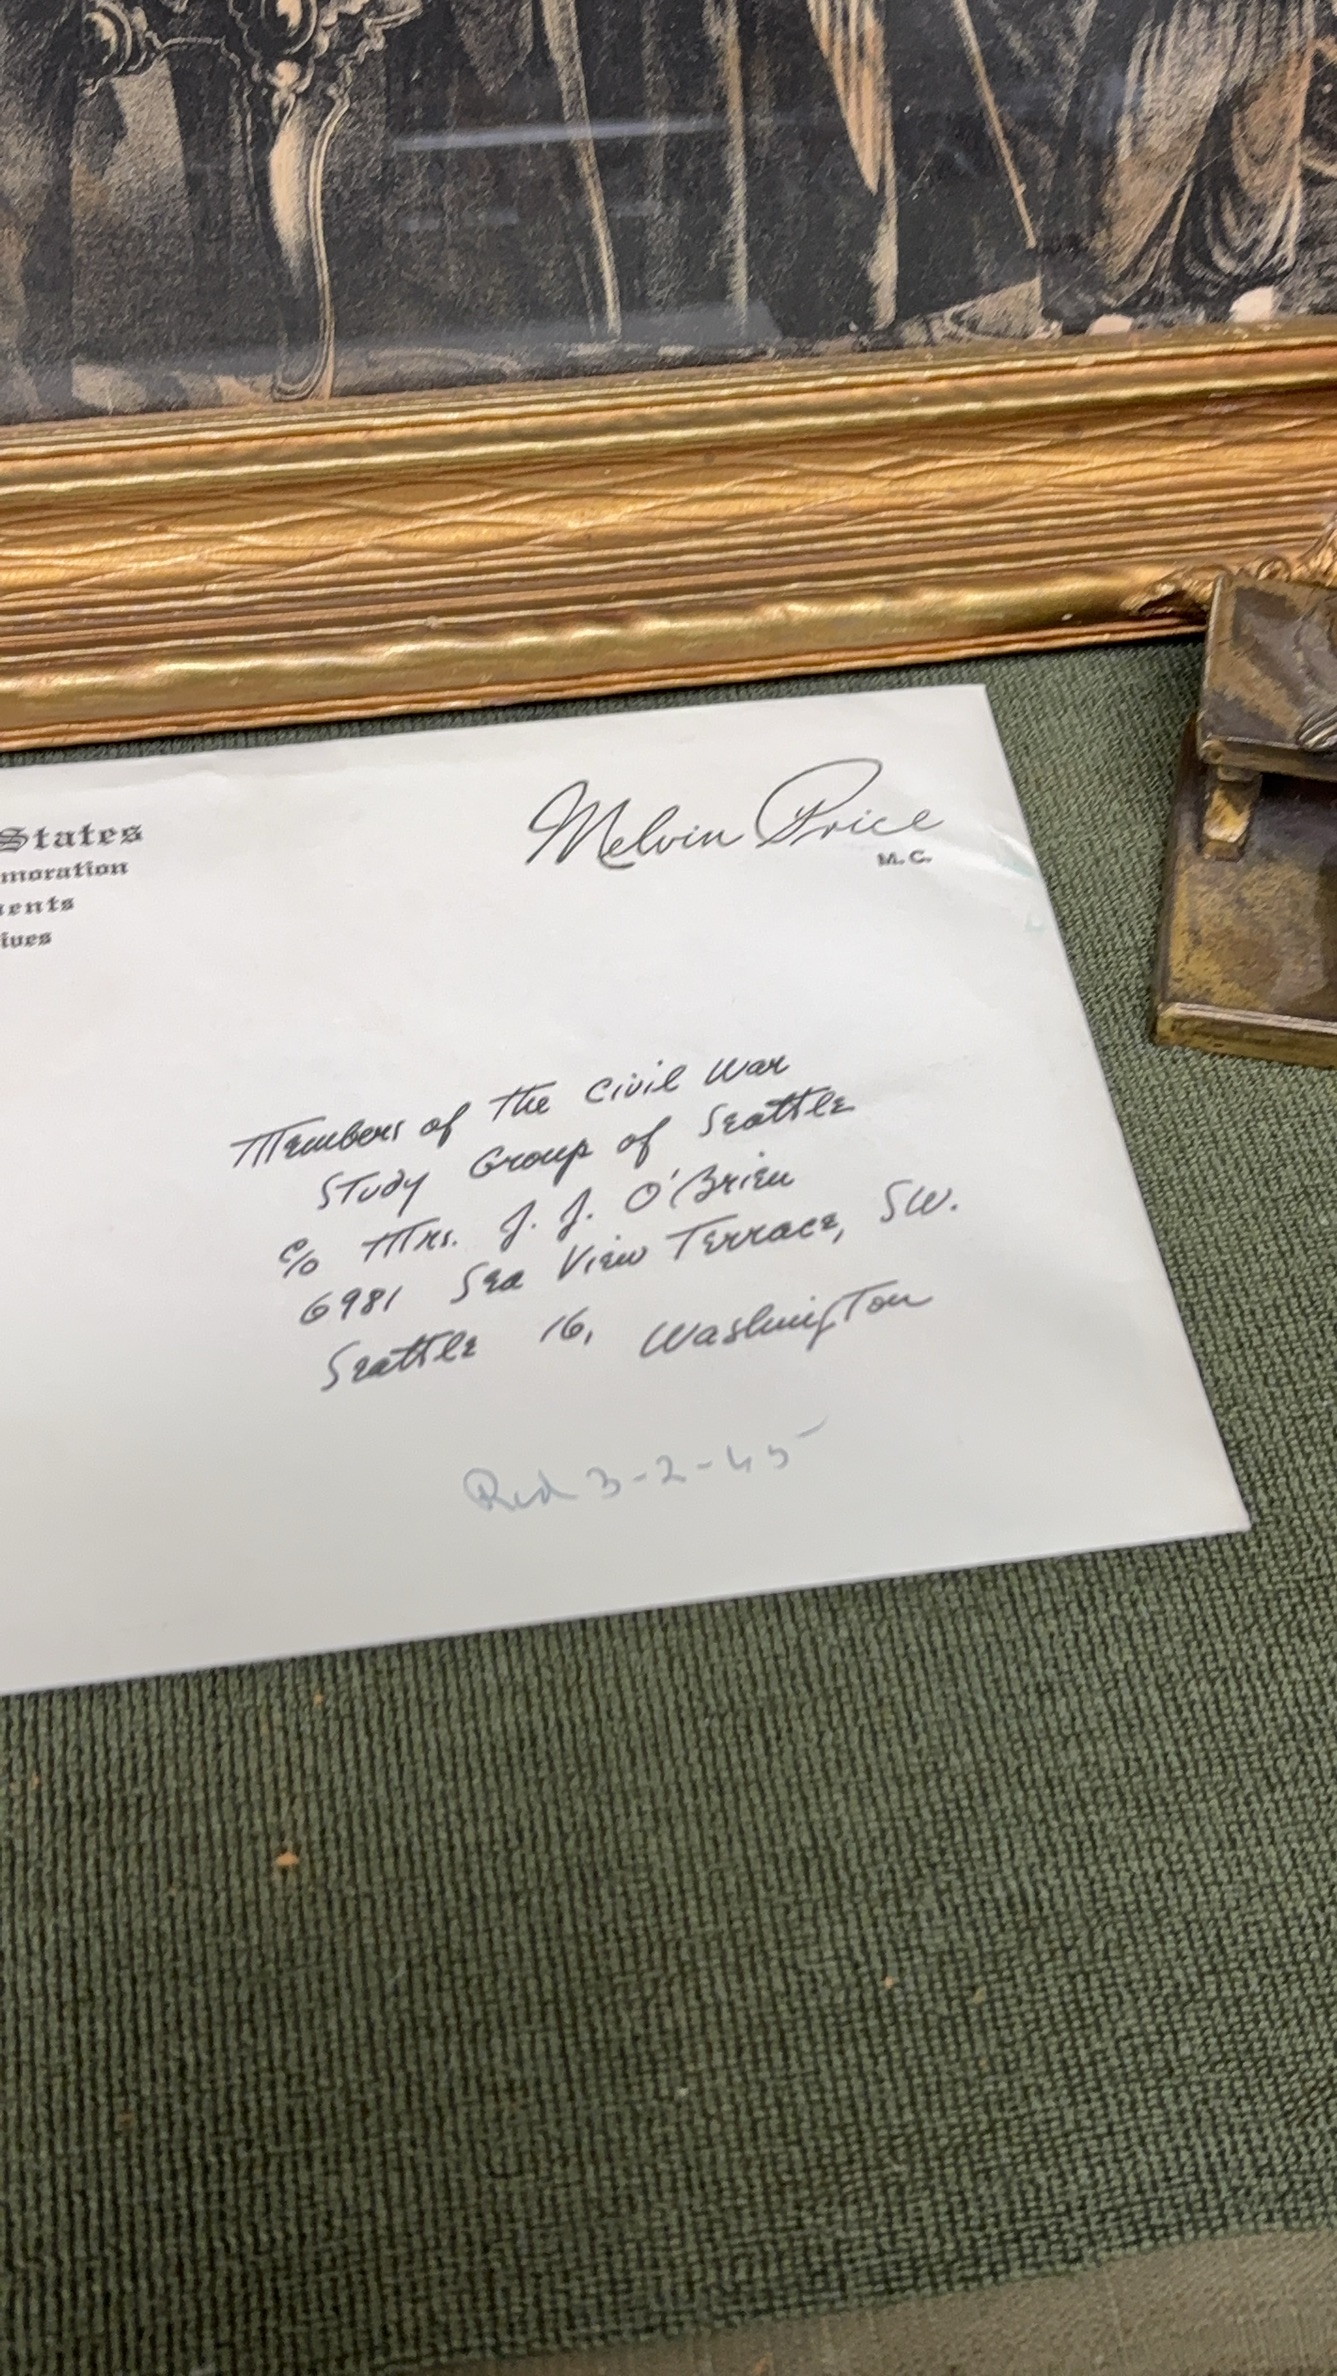 States
moration
ents
ives
Melvin Price
M.C.
Members of The Civil War
Study Group of Seattle
c/o Mrs. J. J. O'Brien
6981 Sea View Terrace, SW.
Seattle 16, Washington
3-2-65